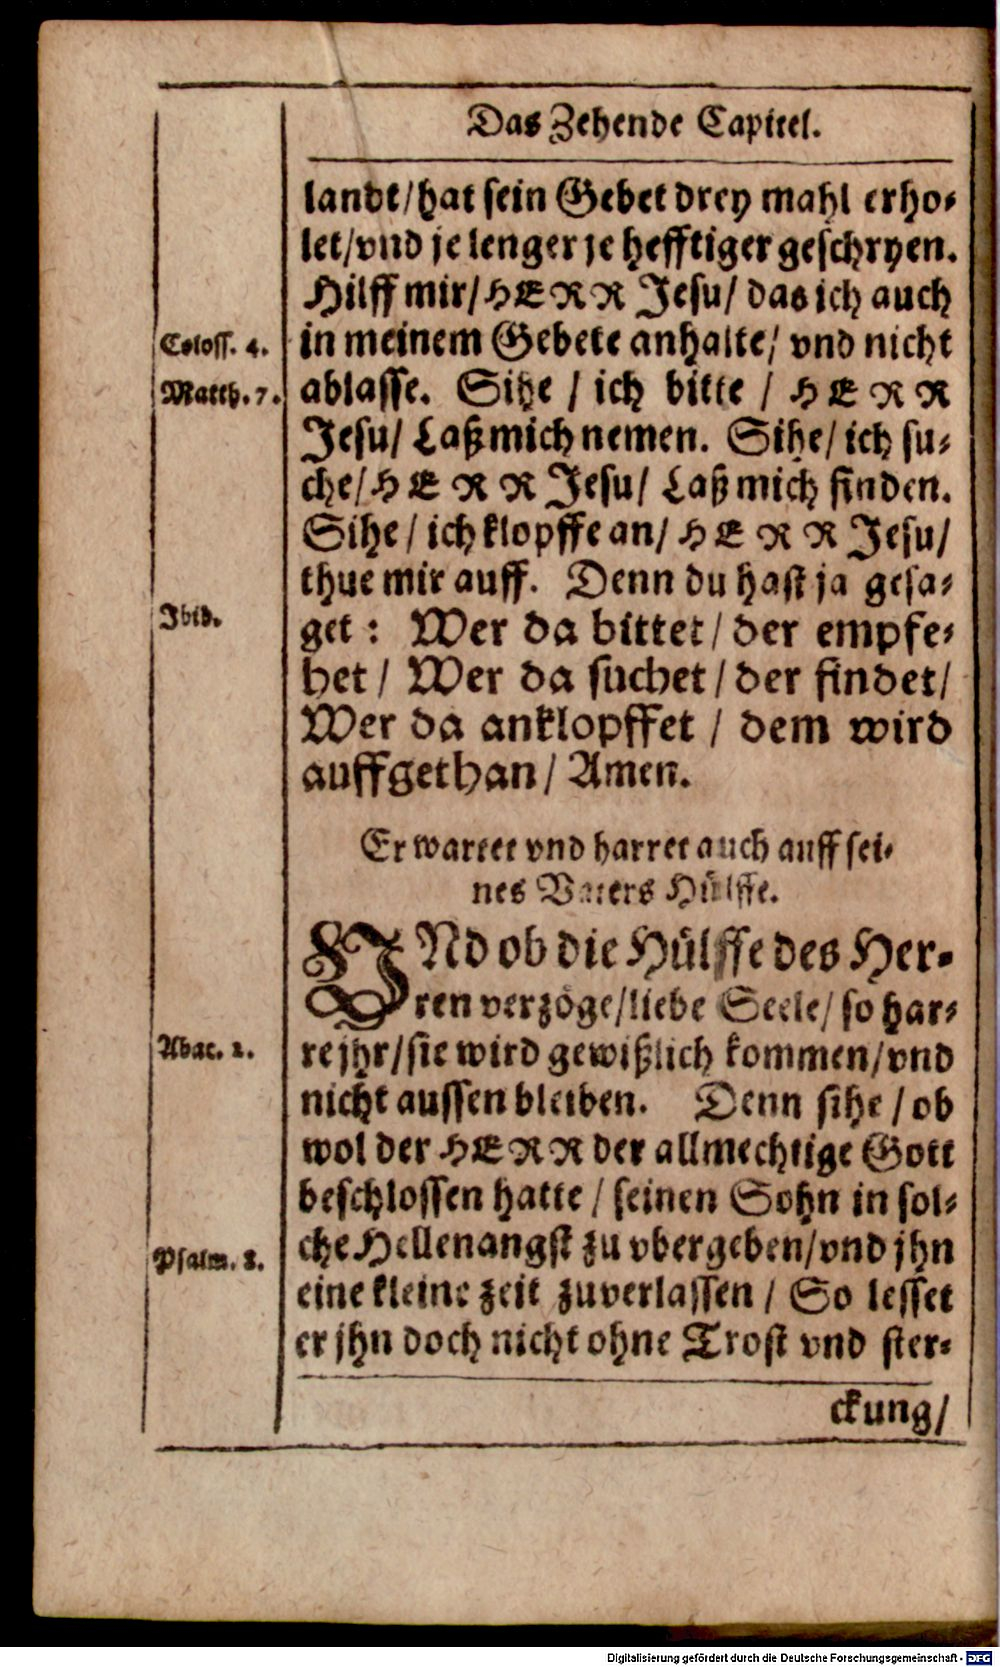 Das Zehende Capitel.
landt/hat sein Gebet drey mahl erho-
let/vnd je lenger je hefftiger geschryen.
Hilff mir/HERR Jesu/ das ich auch
Coloss. 4.
in meinem Gebete anhalte/ vnd nicht
Matth. 7.
ablasse. Sihe / ich bitte / HERR
Jesu/ Laß mich nemen. Sihe/ ich su-
che/HERR Jesu/ Laß mich finden.
Sihe/ ich klopffe an/ HERR Jesu/
thue mir auff. Denn du hast ja gesa-
Ibid.
get: Wer da bittet/ der empfe-
het/ Wer da suchet/ der findet/
Wer da anklopffet / dem wird
auffgethan/ Amen.
Er wartet vnd harret auch auff sei-
nes Vaters Hülffe.
VNd ob die Hülffe des Her-
ren verzöge/liebe Seele/ so har-
Abac. 2.
re jhr/sie wird gewißlich kommen/vnd
nicht aussen bleiben. Denn sihe / ob
wol der HERR der allmechtige Gott
beschlossen hatte / seinen Sohn in sol-
Psalm. 8.
che Hellenangst zu vbergeben/vnd jhn
eine kleine zeit zuverlassen / So lesset
er jhn doch nicht ohne Trost vnd ster-
ckung/
Digitalisierung gefördert durch die Deutsche Forschungsgemeinschaft - DFG